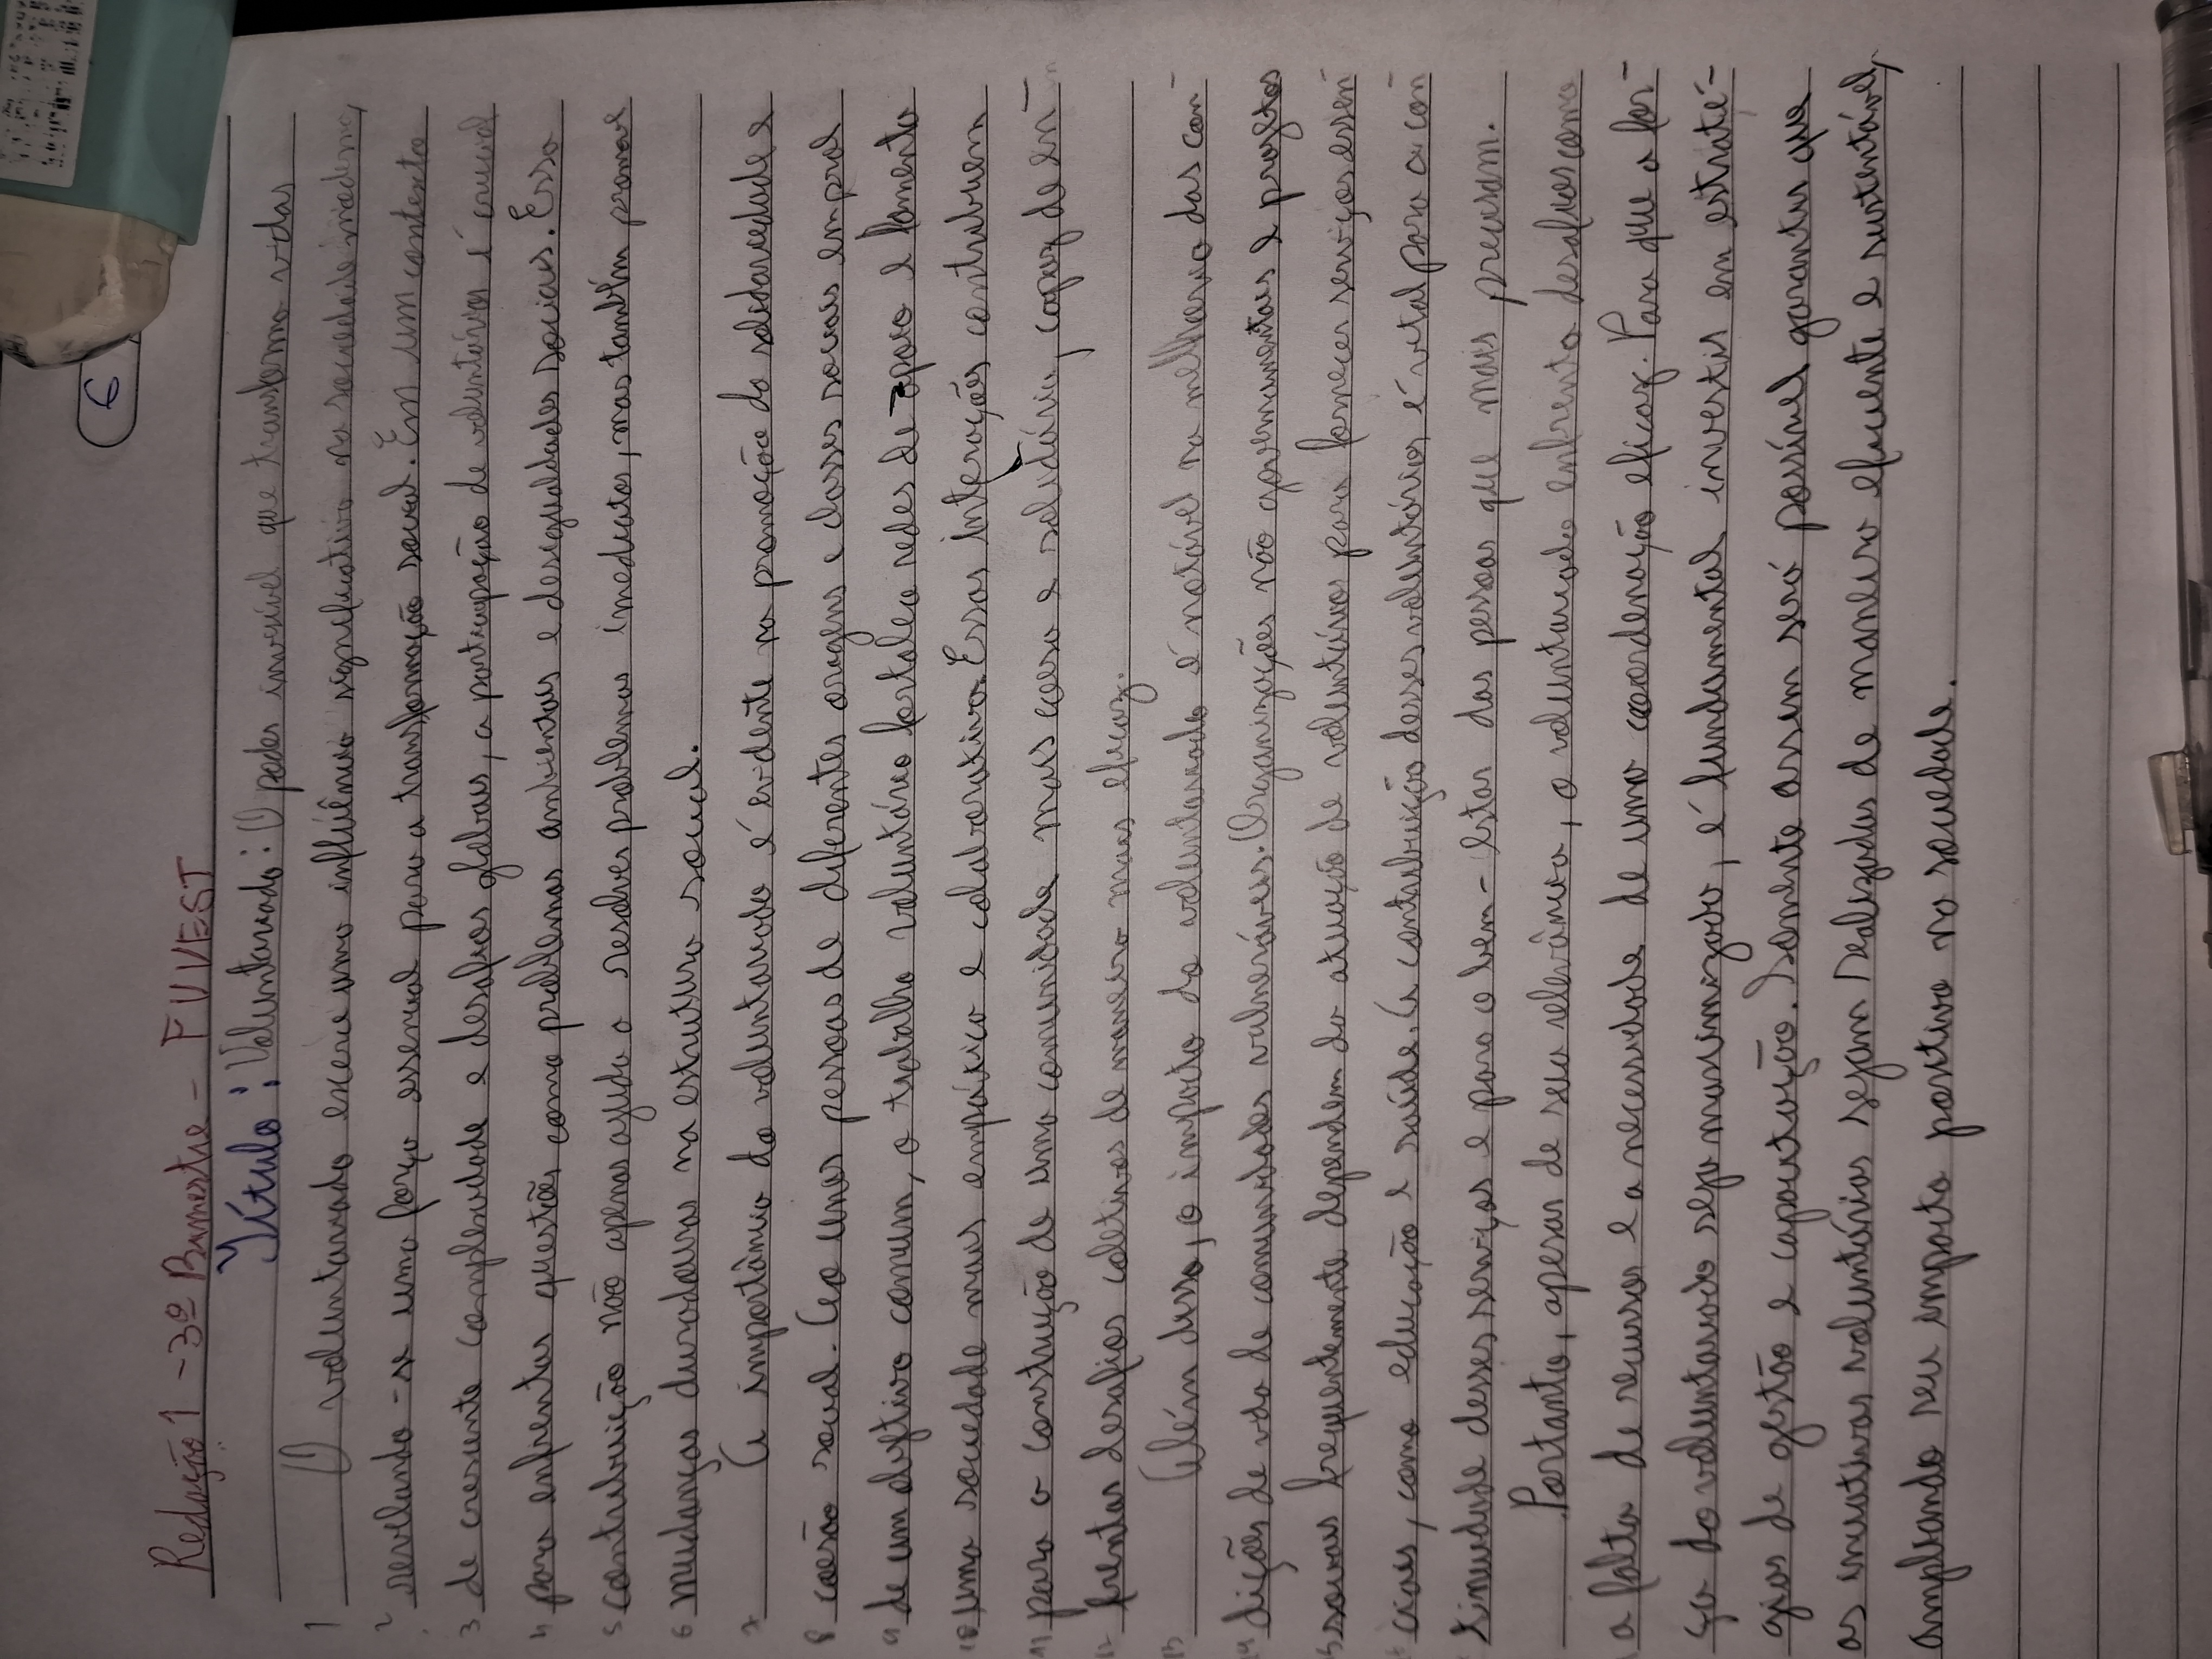 6
Redação 1 - 3º Bimestre - FUVEST
Título: Voluntariado: O poder invisível que transforma vidas
1 O voluntariado exerce uma influência significativa na sociedade moderna,
2 revelando-se uma força essencial para a transformação social. Em um contexto
3 de crescente complexidade e desafios globais, a participação de voluntários é crucial
4 para enfrentar questões como problemas ambientais e desigualdades sociais. Essa
5 contribuição não apenas ajuda a resolver problemas imediatos, mas também promove
6 mudanças duradouras na estrutura social.
7 A importância do voluntariado é evidente na promoção da solidariedade e
8 coesão social. Ao unir pessoas de diferentes origens e classes sociais em prol
9 de um objetivo comum, o trabalho voluntário fortalece redes de apoio e fomenta
10 uma sociedade mais empática e colaborativa. Essas interações contribuem
11 para a construção de uma comunidade mais coesa e solidária, capaz de en-
12 frentar desafios coletivos de maneira mais eficaz.
13 Além disso, o impacto do voluntariado é notável na melhoria das con-
14 dições de vida de comunidades vulneráveis. Organizações não governamentais e projetos
5 sociais frequentemente dependem da atuação de voluntários para fornecer serviços essen-
ciais, como educação e saúde. A contribuição desses voluntários é vital para a con-
tinuidade desses serviços e para o bem-estar das pessoas que mais precisam.
Portanto, apesar de sua relevância, o voluntariado enfrenta desafios como
a falta de recursos e a necessidade de uma coordenação eficaz. Para que a for-
ça do voluntariado seja maximizada, é fundamental investir em estraté-
gias de gestão e capacitação. Somente assim será possível garantir que
as iniciativas voluntárias sejam realizadas de maneira eficiente e sustentável,
ampliando seu impacto positivo na sociedade.